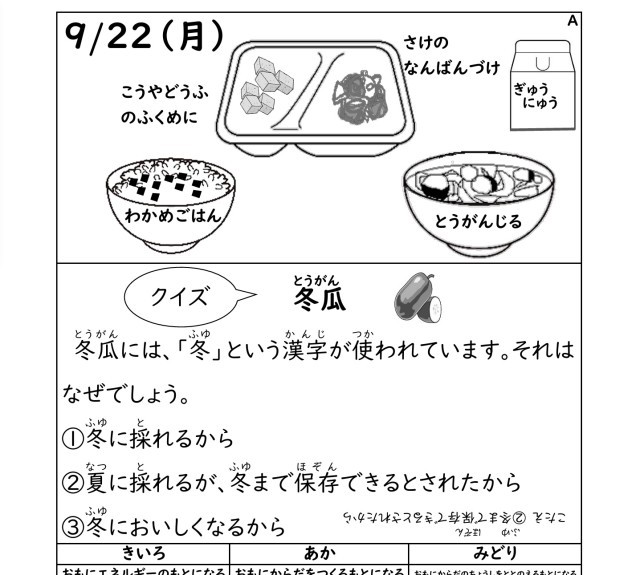 9/22(月)
A
さけの
なんばんづけ
こうやどうふ
のふくめに
ぎゅう
にゅう
わかめごはん
とうがんじる
クイズ
とうがん
冬瓜
とうがん ふゆ かんじ つか
冬瓜には、「冬」という漢字が使われています。それは
なぜでしょう。
ふゆ と
①冬に採れるから
なつ と ふゆ ほぞん
②夏に採れるが、冬まで保存できるとされたから
ふゆ
③冬においしくなるから
ふゆ ほぞん
こたえ ②冬まで保存できるとされたから
きいろ
あか
みどり
おもにエネルギーのもとになる
おもにからだをつくるもとになる
おもにからだのちょうしをととのえるもとになる